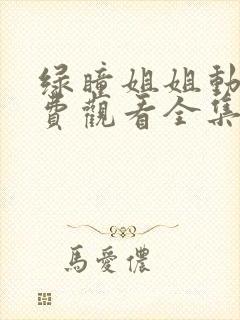 绿瞳姐姐動
費觀看全集
馬愛儂